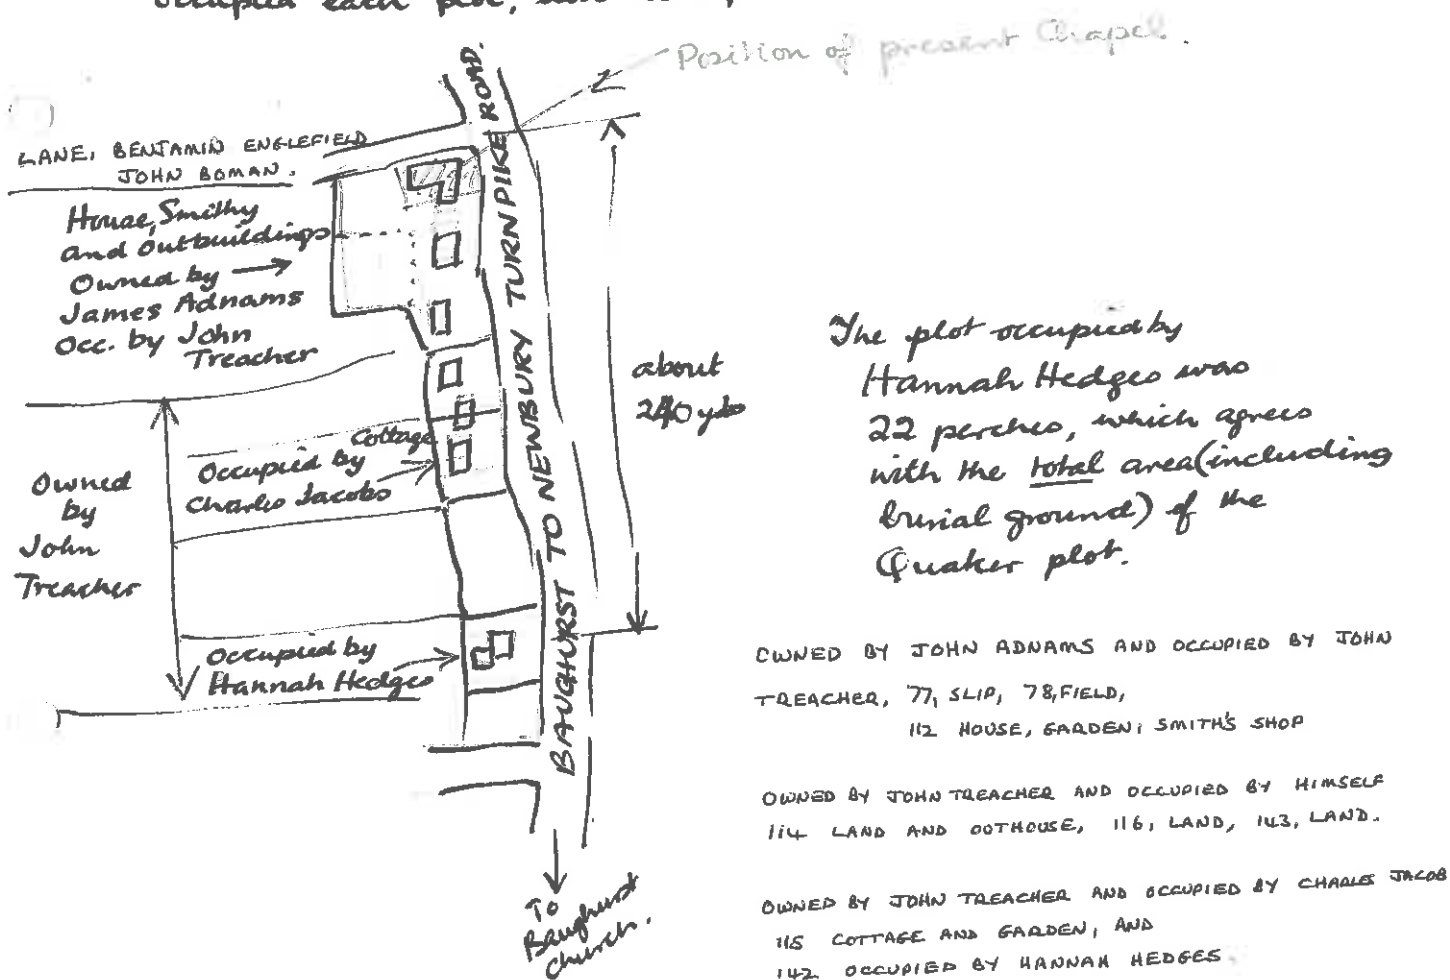 occupied each plot,
Position of present Chapel.
LANE, BENJAMIN ENGLEFIELD
JOHN BOMAN.
House, Smithy
and Outbuildings
Owned by
James Adnams
Occ. by John
Treacher
BAUGHURST TO NEWBURY TURNPIKE ROAD.
about
240 yds
Cottage
Occupied by
Charles Jacobs
Owned
by
John
Treacher
Occupied by
Hannah Hedges
To
Baughurst
Church.
The plot occupied by
Hannah Hedges was
22 perches, which agrees
with the total area (including
burial ground) of the
Quaker plot.
OWNED BY JOHN ADNAMS AND OCCUPIED BY JOHN
TREACHER, 77, SLIP, 78, FIELD,
112 HOUSE, GARDEN, SMITH'S SHOP
OWNED BY JOHN TREACHER AND OCCUPIED BY HIMSELF
114 LAND AND OUTHOUSE, 116, LAND, 143, LAND.
OWNED BY JOHN TREACHER AND OCCUPIED BY CHARLES JACOB
115 COTTAGE AND GARDEN, AND
142 OCCUPIED BY HANNAH HEDGES.